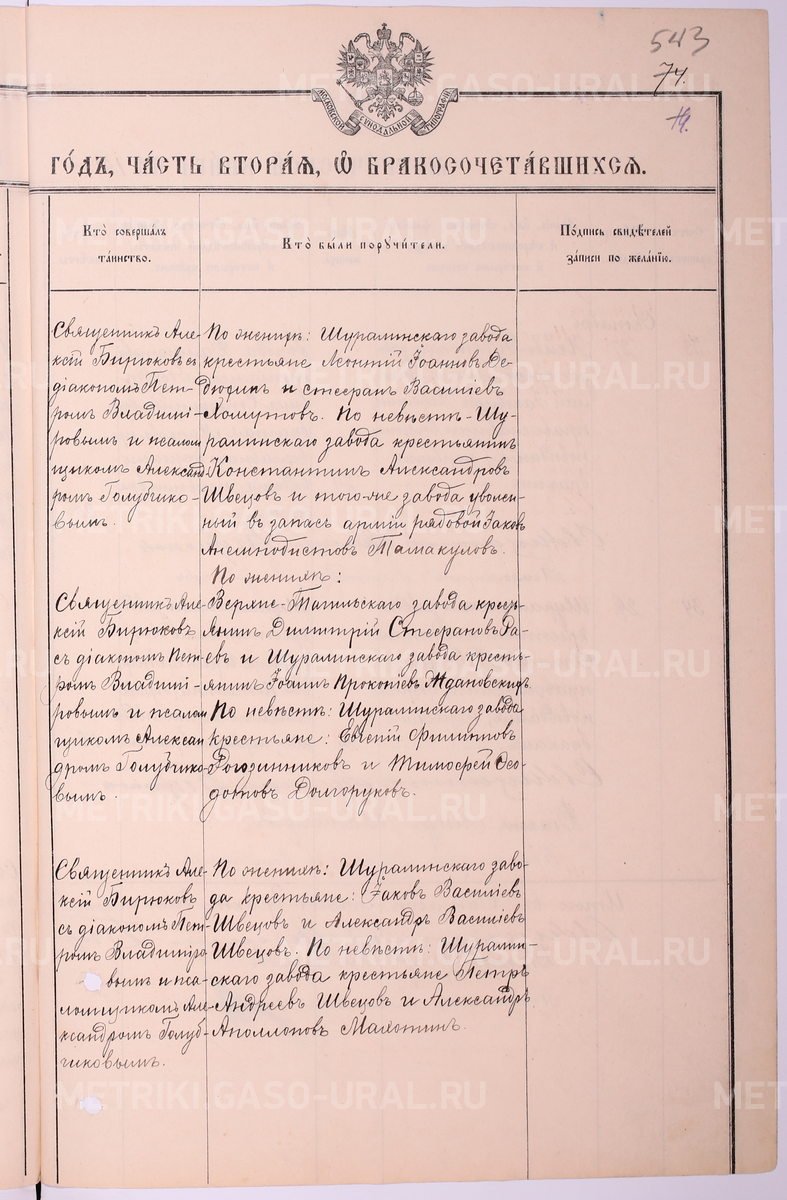 543
74.
МОСКОВСКОЙ СУНОДАЛЬНОЙ ТИПОГРАФІИ
ГО́ДЪ, ЧА́СТЬ ВТОРА́Я, Ѡ БРАКОСОЧЕТА́ВШИХСЯ.
Кто̀ соверша́лъ
та́инство.
Кто̀ бы́ли порꙋчи́тели.
По́дпись свидѣ́телей
за́писи по жела́нїю.
Священникъ Але-
ксій Бирюковъ съ
діакономъ Пет-
ромъ Владимі-
ровымъ и псалом
щикомъ Александ
ромъ Голубчико-
вымъ.
По женихѣ: Шуралинскаго завода
крестьяне Леонтій Іоанновъ Де-
дюхинъ и Стефанъ Василіевъ
Хомутовъ. По невѣстѣ - Шу-
ралинскаго завода крестьянинъ
Константинъ Александровъ
Швецовъ и того-же завода уволен-
ный въ запасъ арміи рядовой Іаковъ
Анемподистовъ Тамакуловъ.
Священникъ Але-
ксій Бирюковъ
съ діакономъ Пет-
ромъ Владимі-
ровымъ и псалом
щикомъ Алексан
дромъ Голубчико-
вымъ.
По женихѣ:
Верхне-Тагильскаго завода кресть-
янинъ Димитрій Стефановъ Га-
евъ и Шуралинскаго завода кресть-
янинъ Іоаннъ Прокопіевъ Ждановскихъ
По невѣстѣ: Шуралинскаго завода
крестьяне: Евгеній Филипповъ
Рогозинниковъ и Тимофей Ѳео-
дотовъ Долгоруковъ.
Священникъ Але-
ксій Бирюковъ
съ діакономъ Пет-
ромъ Владиміро
вымъ и пса-
ломщикомъ Але-
ксандромъ Голуб-
чиковымъ.
По женихѣ: Шуралинскаго заво-
да крестьяне: Іаковъ Василіевъ
Швецовъ и Александръ Василіевъ
Швецовъ. По невѣстѣ: Шурали-
нскаго завода крестьяне Петръ
Андреевъ Швецовъ и Александръ
Аполлоновъ Малютинъ.
METRIKI.GASO-URAL.RU